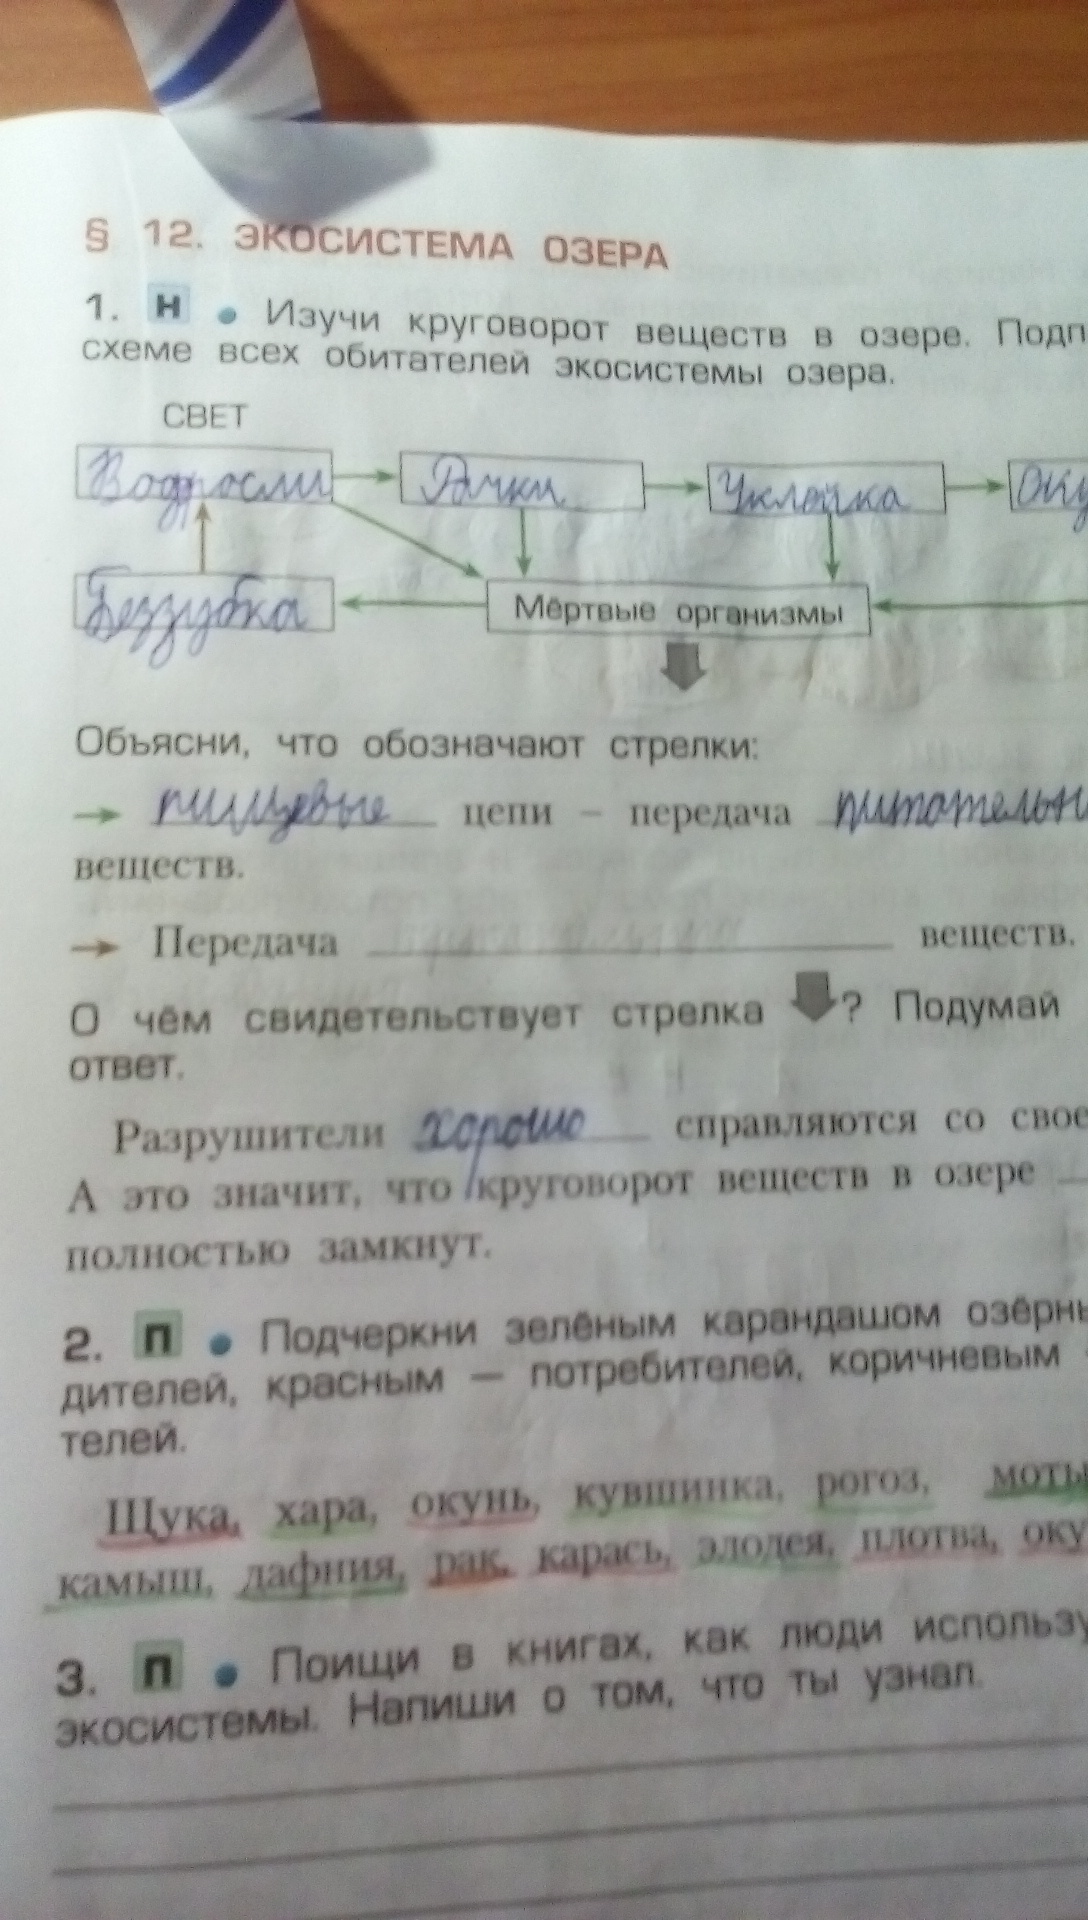 § 12. ЭКОСИСТЕМА ОЗЕРА
1. Н • Изучи круговорот веществ в озере. Подп
схеме всех обитателей экосистемы озера.
СВЕТ
Водросли Рачки Уклейка Оку
Беззубка Мёртвые организмы
Объясни, что обозначают стрелки:
пищевые цепи – передача питательн
веществ.
Передача веществ.
О чём свидетельствует стрелка ? Подумай
ответ.
Разрушители хорошо справляются со свое
А это значит, что круговорот веществ в озере
полностью замкнут.
2. П • Подчеркни зелёным карандашом озёрны
дителей, красным — потребителей, коричневым
телей.
Щука, хара, окунь, кувшинка, рогоз, моты
камыш, дафния, рак, карась, элодея, плотва, оку
3. П • Поищи в книгах, как люди использу
экосистемы. Напиши о том, что ты узнал.